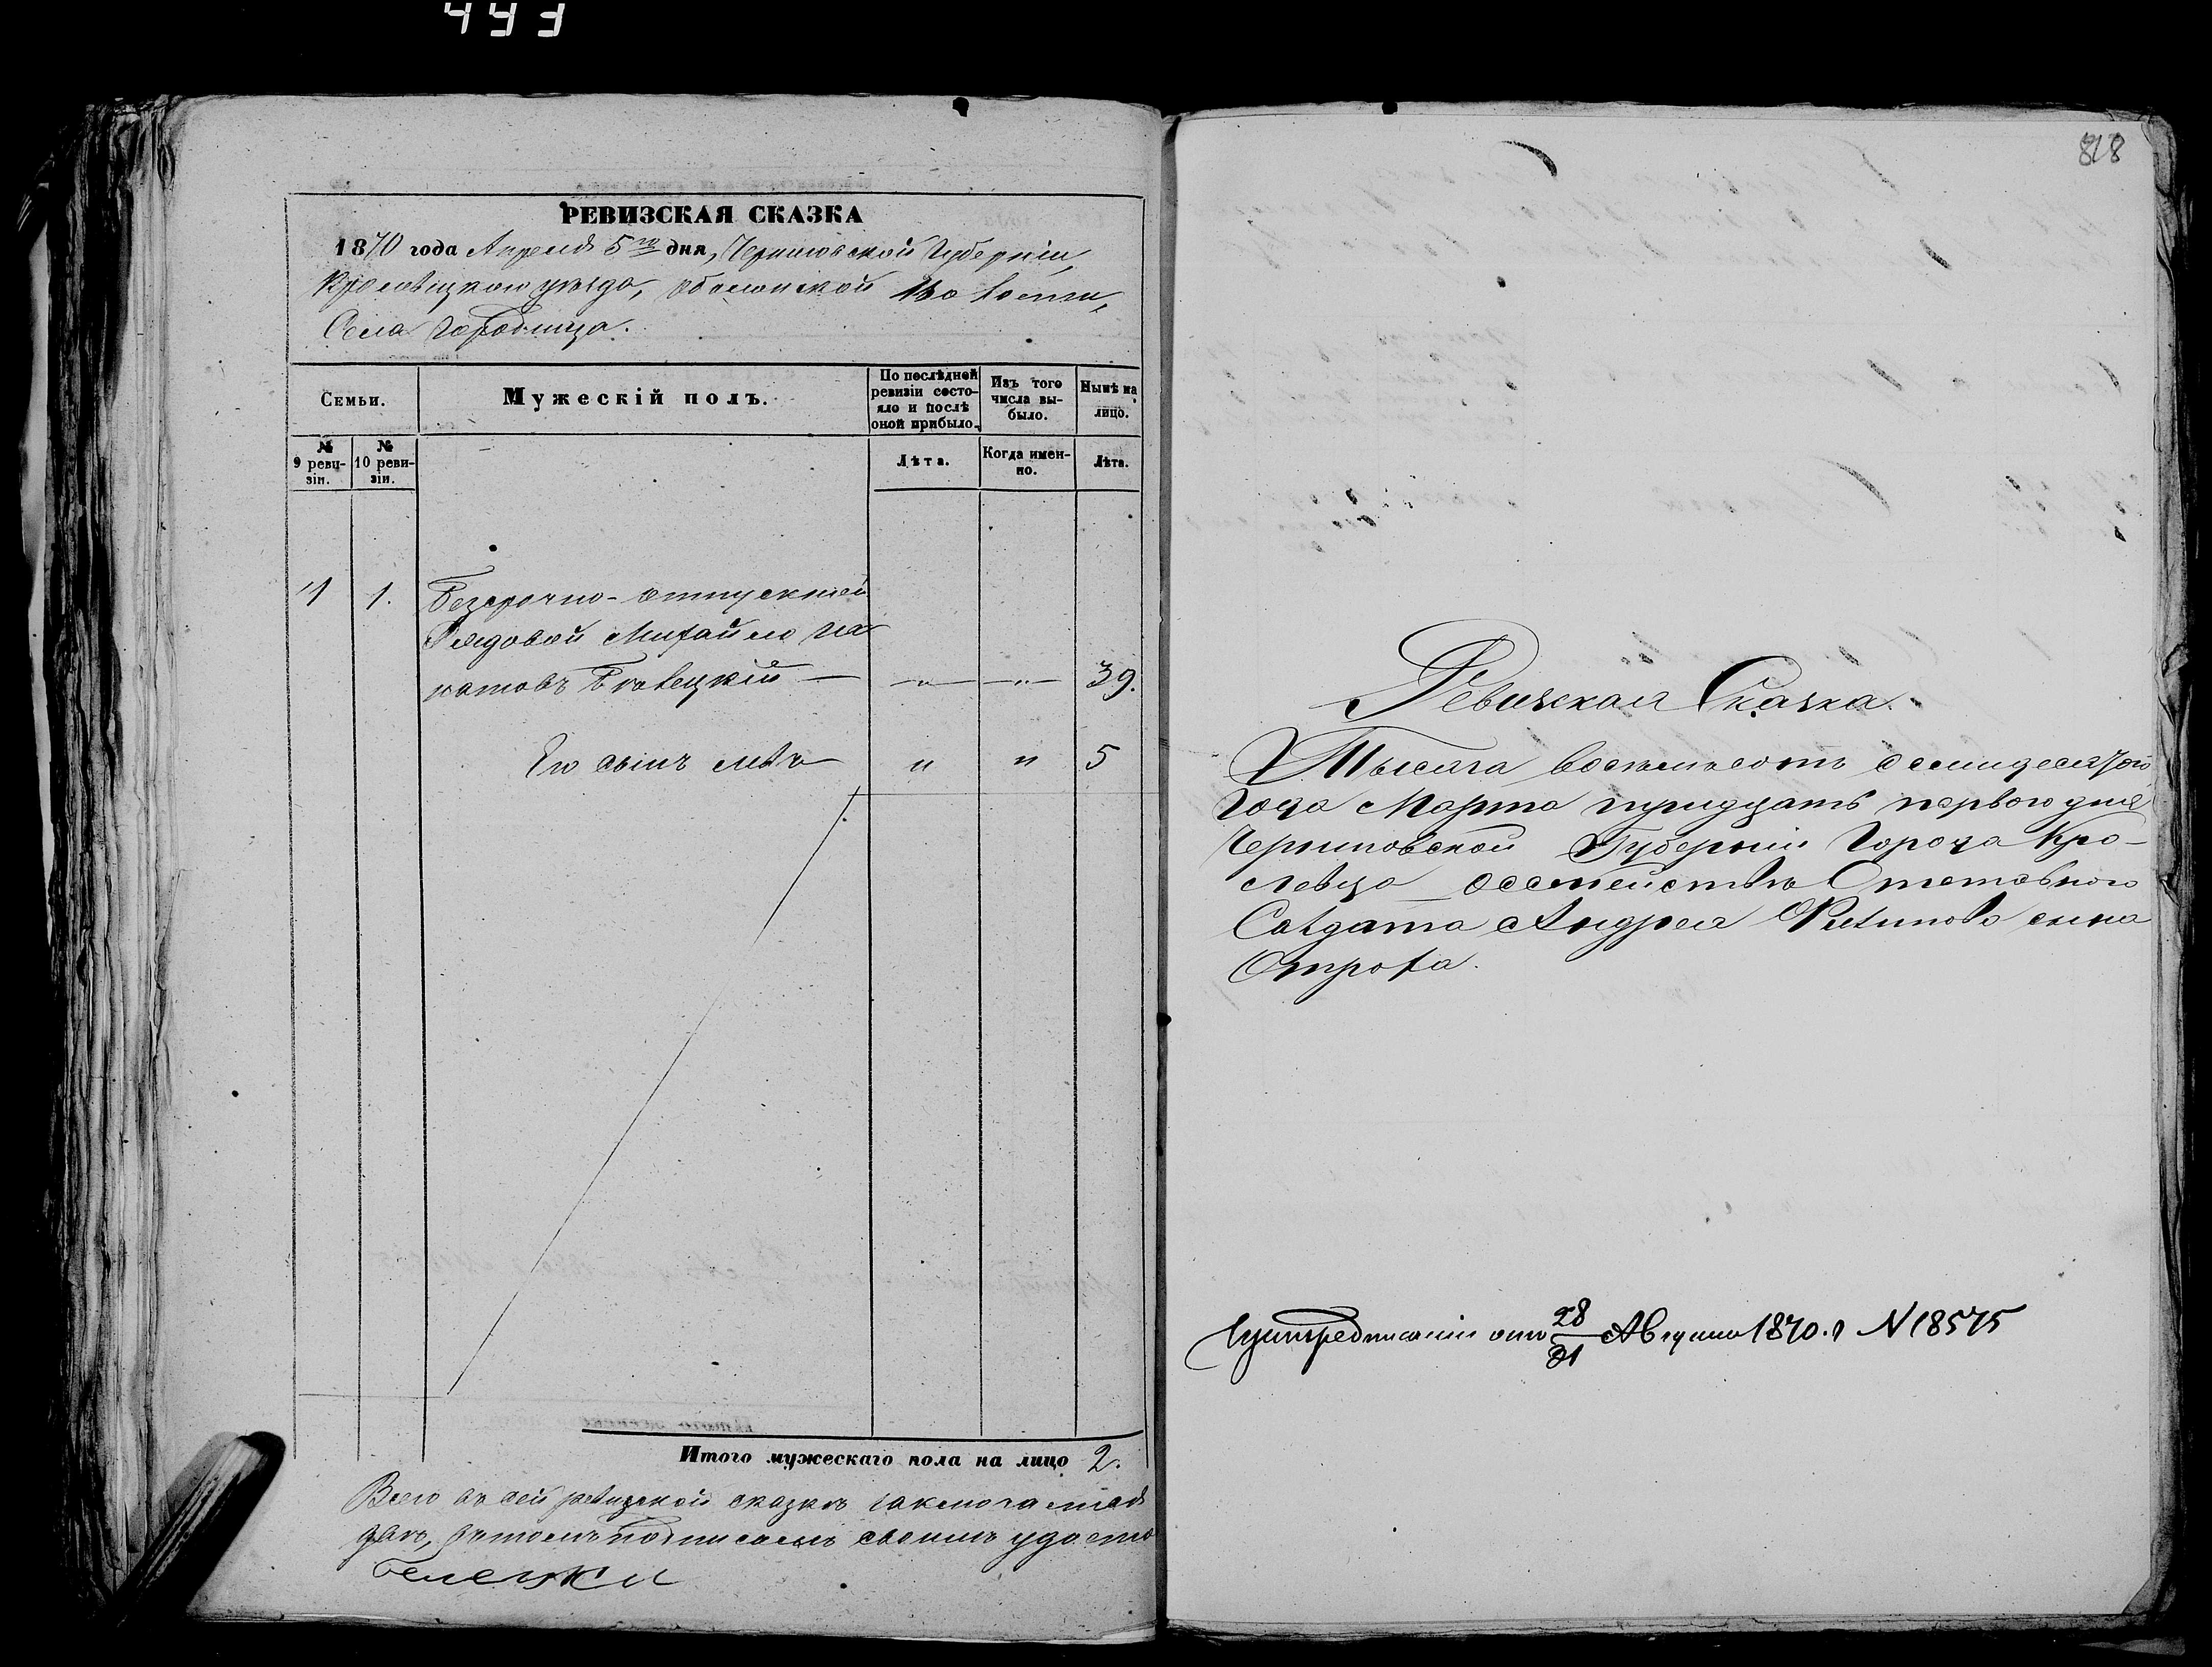 443
РЕВИЗСКАЯ СКАЗКА
1870 года Апреля 5го дня, Черниговской Губерніи,
Кролевецкого уезда,
Села Городища.
Семьи.
Мужескій полъ.
По послѣдней ревизіи состояло и послѣ оной прибыло.
Изъ того числа выбыло.
Нынѣ на лицо.
№ 9 ревизіи.
№ 10 ревизіи.
Лѣта.
Когда именно.
Лѣта.
1 1. Безсрочно-отпускной
Рядовой Михайло
39.
Его сынъ " " 5
Итого мужескаго пола на лицо 2.
Всего въ сей ревизской сказкѣ
подписомъ своимъ удосто
818
Ревизская Сказка.
Тысяча восемьсотъ семидесятого
года Марта тридцать первого дня
Черниговской Губерніи Города Кро-
левца о семействѣ Отставного
Солдата Андрея сына
при предписаніи отъ 28/31 Августа 1870. г N 18575